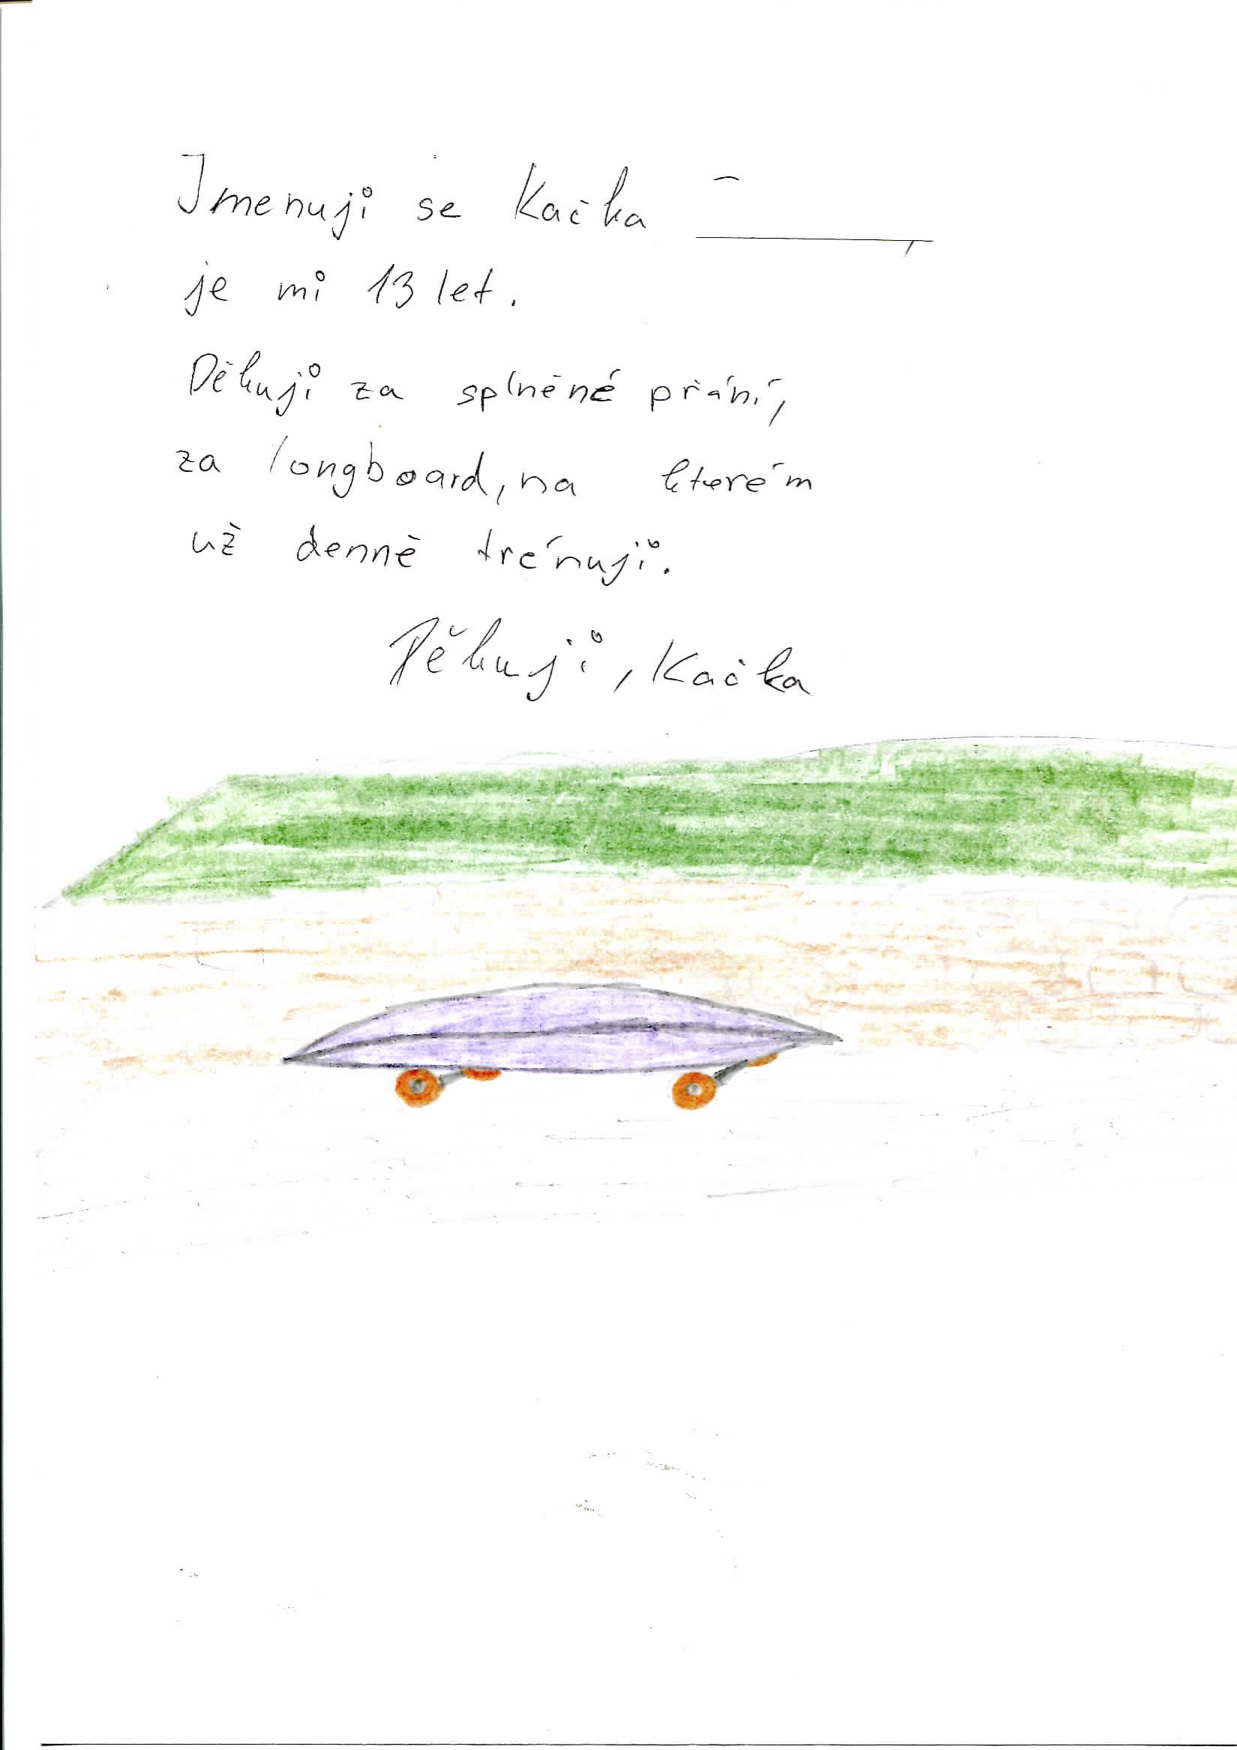 Jmenuji se Kačka
je mi 13 let.
Děkuji za splněné přání,
za longboard, na kterém
už denně trénuji.
Děkuji, Kačka